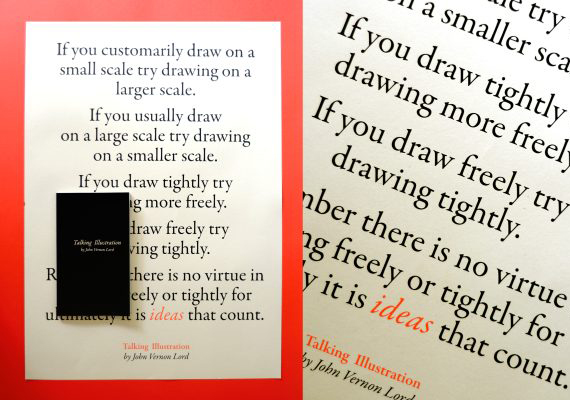 If you customarily draw on a
small scale try drawing on a
larger scale.
If you usually draw
on a large scale try drawing
on a smaller scale.
If you draw tightly try
ng more freely.
draw freely try
ving tightly.
R there is no virtue in
eely or tightly for
ultimately it is ideas that count.
Talking Illustration
by John Vernon Lord
Talking Illustration
by John Vernon Lord
le try
n a smaller sca
If you draw tightly
drawing more freely
If you draw freely try
drawing tightly.
mber there is no virtue
ng freely or tightly for
y it is ideas that count.
Talking Illustration
by John Vernon Lord